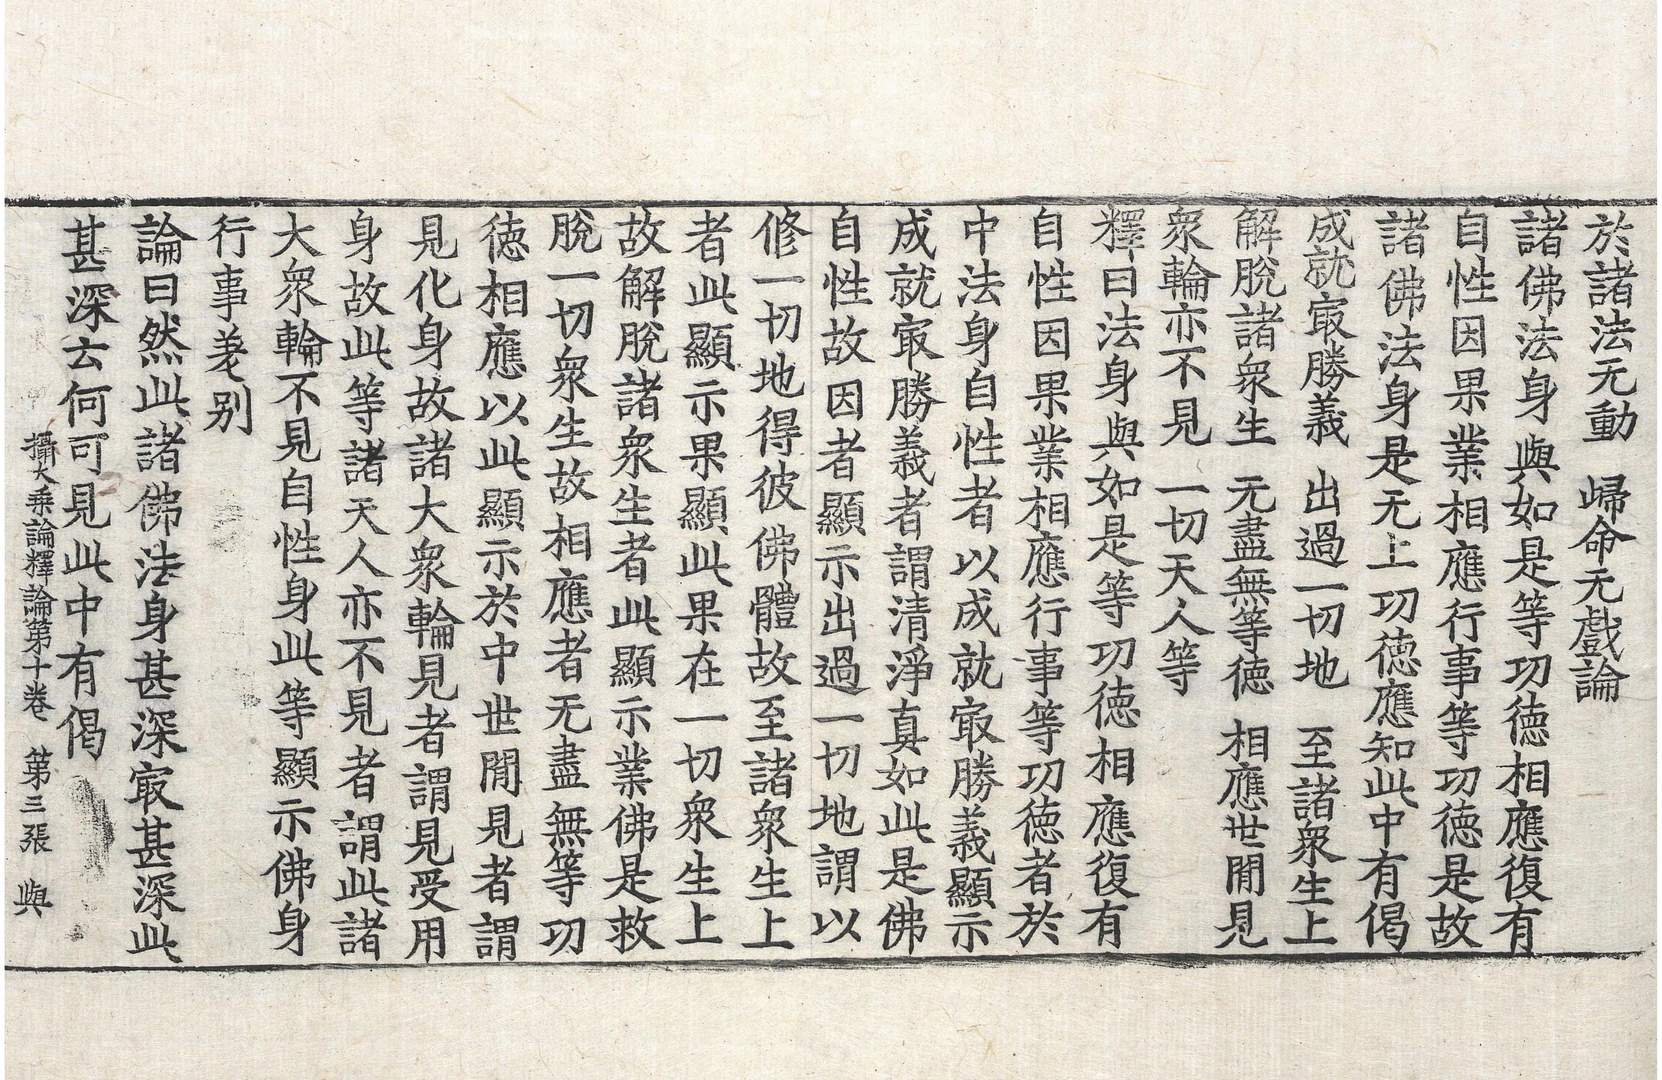 於諸法无動　歸命无戲論
諸佛法身與如是等功徳相應復有
自性因果業相應行事等功徳是故
諸佛法身是无上功徳應知此中有偈
成就㝡勝義　出過一切地　至諸衆生上
解脫諸衆生　无盡無等徳　相應世閒見
衆輪亦不見　一切天人等
釋曰法身與如是等功徳相應復有
自性因果業相應行事等功徳者於
中法身自性者以成就㝡勝義顯示
成就㝡勝義者謂清淨真如此是佛
自性故因者顯示出過一切地謂以
修一切地得彼佛體故至諸衆生上
者此顯示果顯此果在一切衆生上
故解脫諸衆生者此顯示業佛是救
脫一切衆生故相應者无盡無等功
徳相應以此顯示於中世閒見者謂
見化身故諸大衆輪見者謂見受用
身故此等諸天人亦不見者謂此諸
大衆輪不見自性身此等顯示佛身
行事差别
論曰然此諸佛法身甚深㝡甚深此
甚深云何可見此中有偈
攝大乘論釋論第十卷　第三張　與